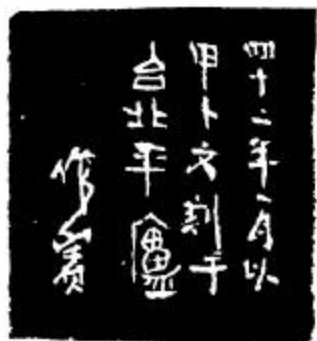 四十二年一月以
甲卜文刻于
台北平廬
作賓